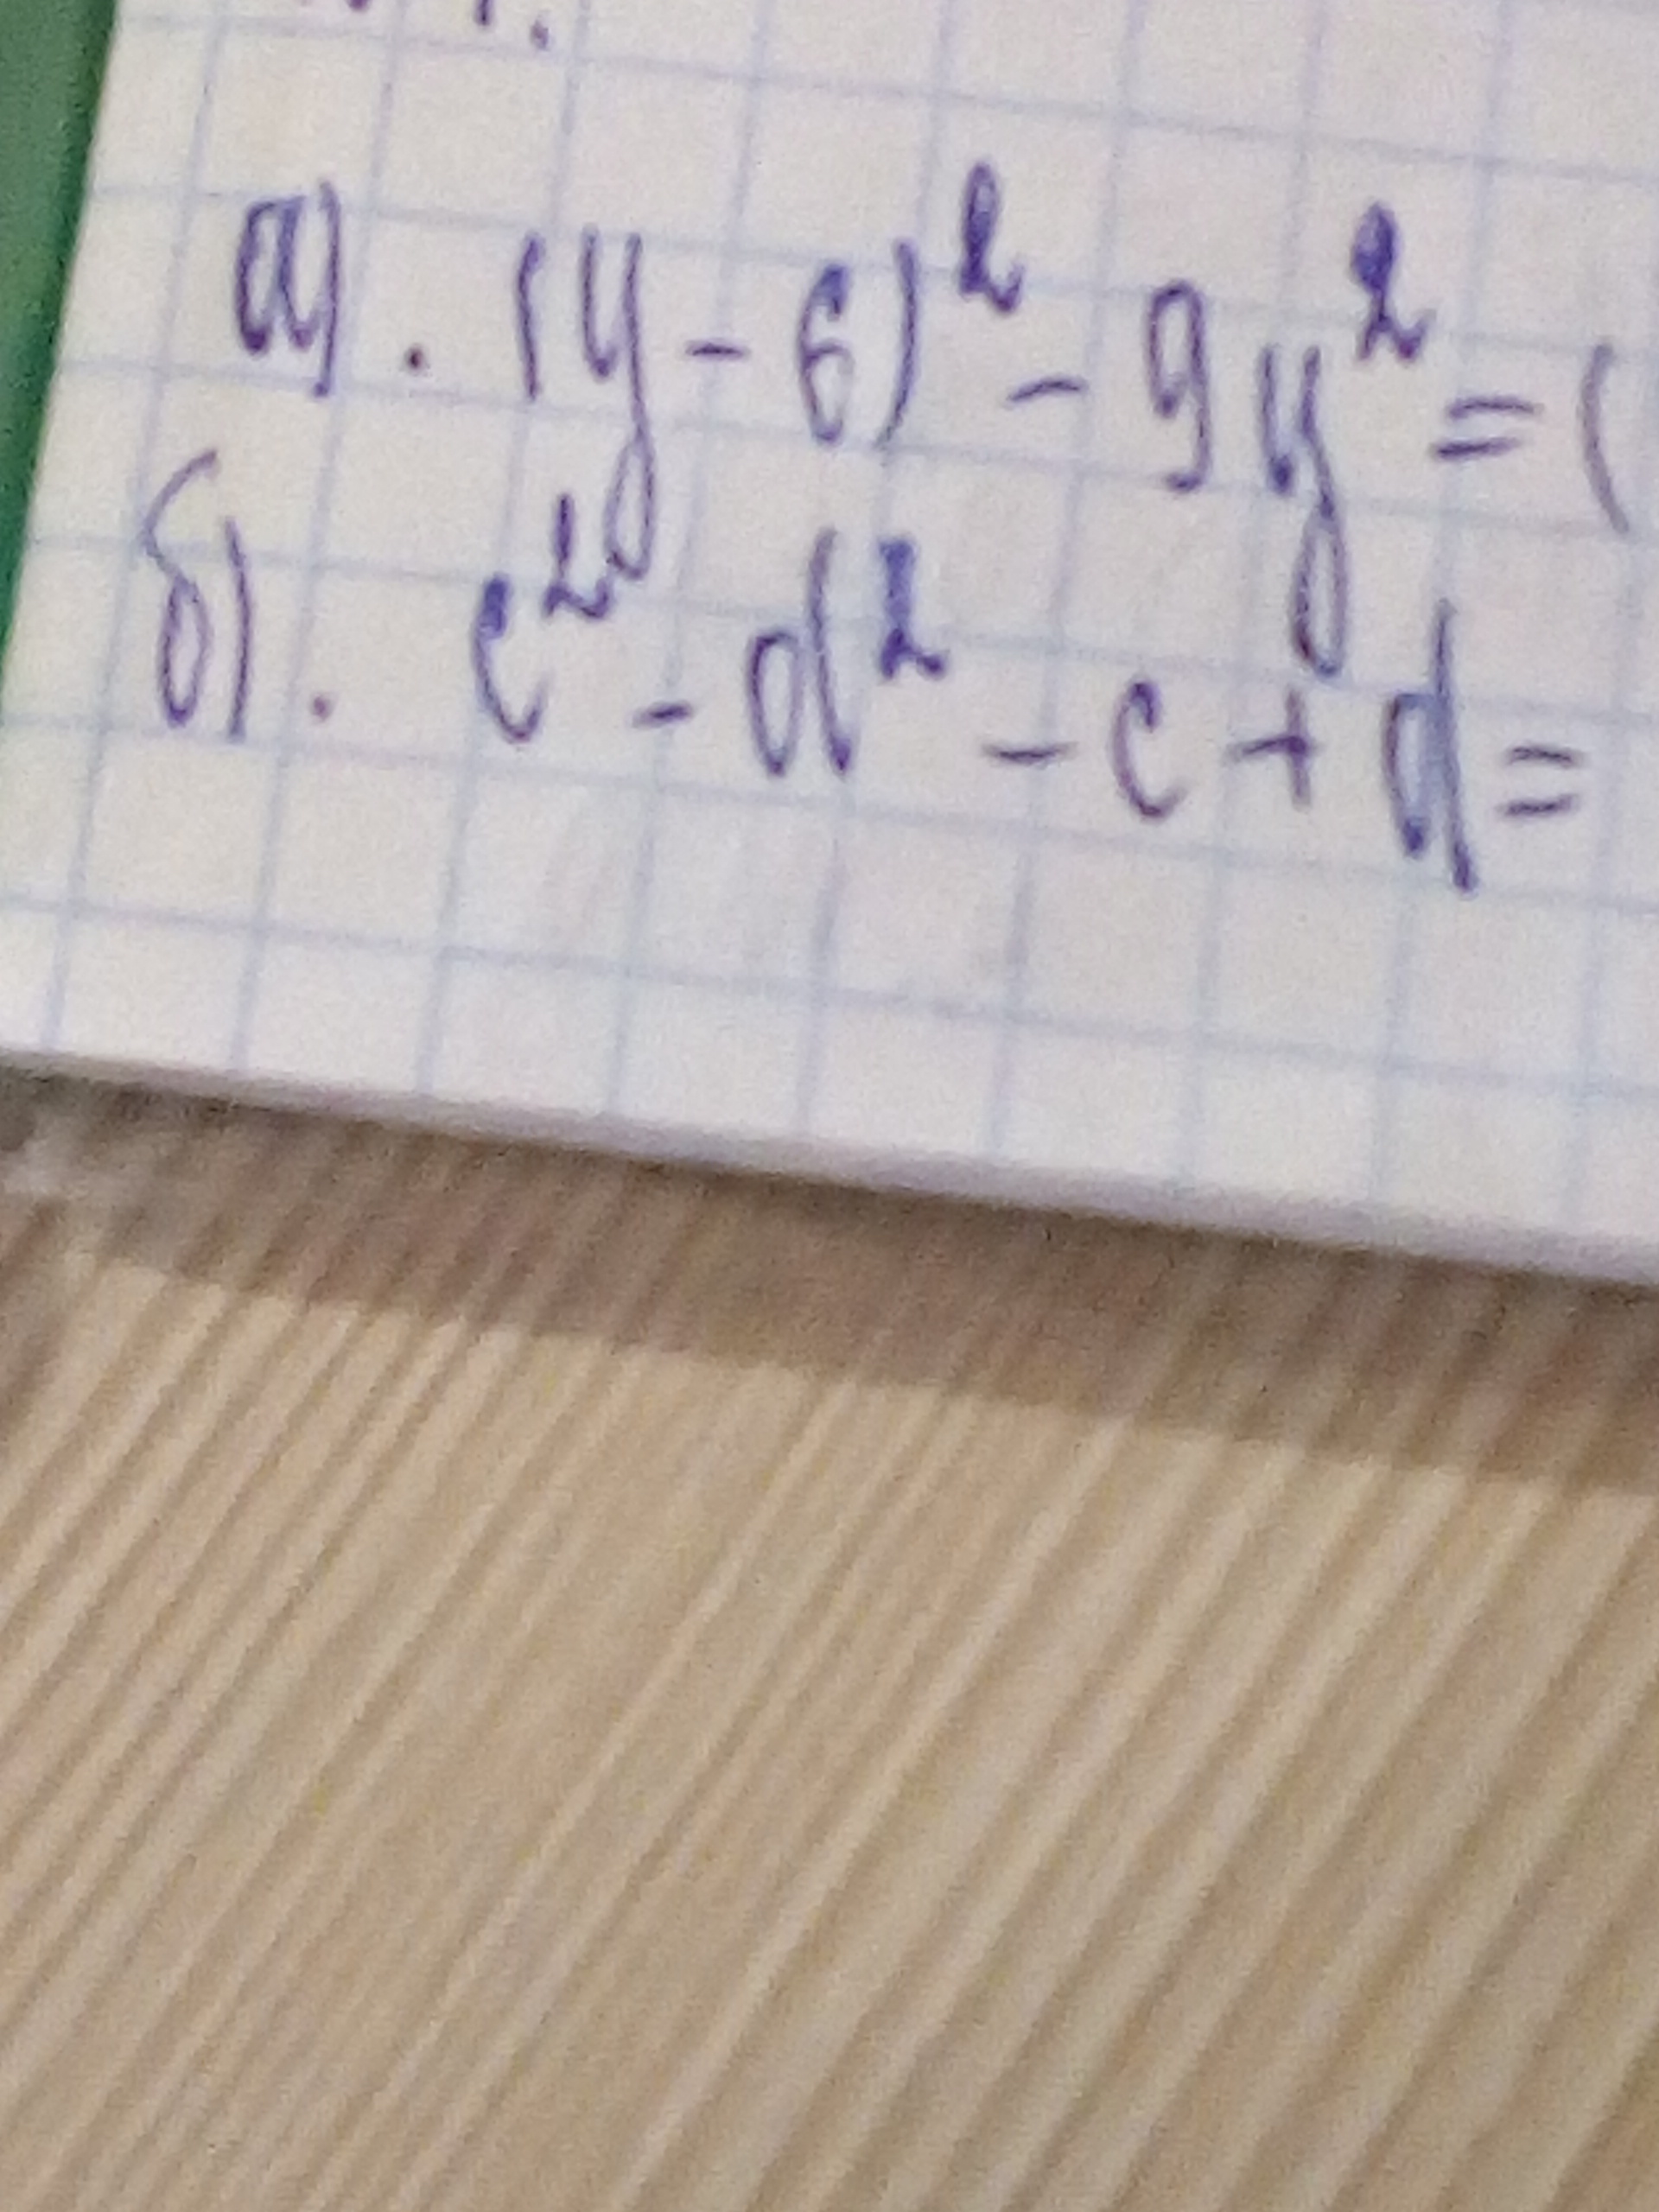 а). (y - 6)² - 9y² = (
б). c² - d² - c + d =